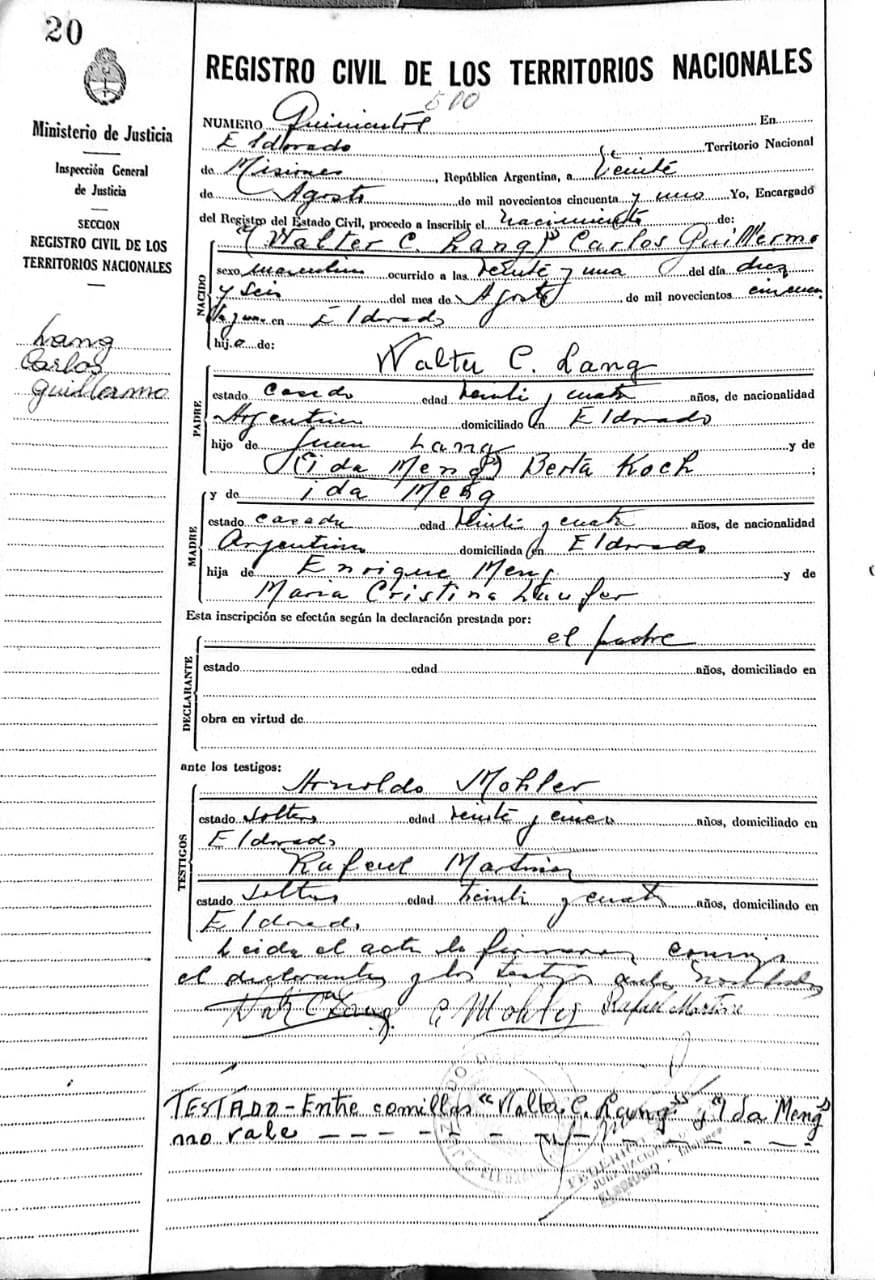 20
Ministerio de Justicia
Inspección General
de Justicia
SECCION
REGISTRO CIVIL DE LOS
TERRITORIOS NACIONALES
Lang
Carlos
Guillermo
REGISTRO CIVIL DE LOS TERRITORIOS NACIONALES
500
NUMERO Quinientos En
Eldorado Territorio Nacional
de Misiones, República Argentina, a veinte
de Agosto de mil novecientos cincuenta y uno Yo, Encargado
del Registro del Estado Civil, procedo a inscribir el nacimiento de:
NACIDO
"Walter C. Lang" Carlos Guillermo
sexo masculino ocurrido a las veinte y una del día diez
y seis del mes de Agosto de mil novecientos cincuen
ta y uno en Eldorado
hijo de:
PADRE
Walter C. Lang
estado casado edad veinti y cuatro años, de nacionalidad
Argentina domiciliado en Eldorado
hijo de Juan Lang y de
"(ida Meng") Berta Koch ;
MADRE
y de ida Meng
estado casada edad veinti y cuatro años, de nacionalidad
Argentina domiciliada en Eldorado
hija de Enrique Meng y de
Maria Cristina Laufer
Esta inscripción se efectúa según la declaración prestada por:
el padre
DECLARANTE
estado edad años, domiciliado en
obra en virtud de
ante los testigos:
TESTIGOS
Arnoldo Mohler
estado soltero edad veinte y cinco años, domiciliado en
Eldorado
Rafael Martinez
estado soltero edad veinti y cuatro años, domiciliado en
Eldorado
Leida el acta la firmaron conmigo
el declarante y los testigos nombrados
Lang Mohler Rafael Martine
TESTADO - Entre comillas "Walter C. Lang" y "Ida Meng"
no vale
JUZGADO D
FEDERICO
JUEZ NACIONAL
ELDORADO - Misiones